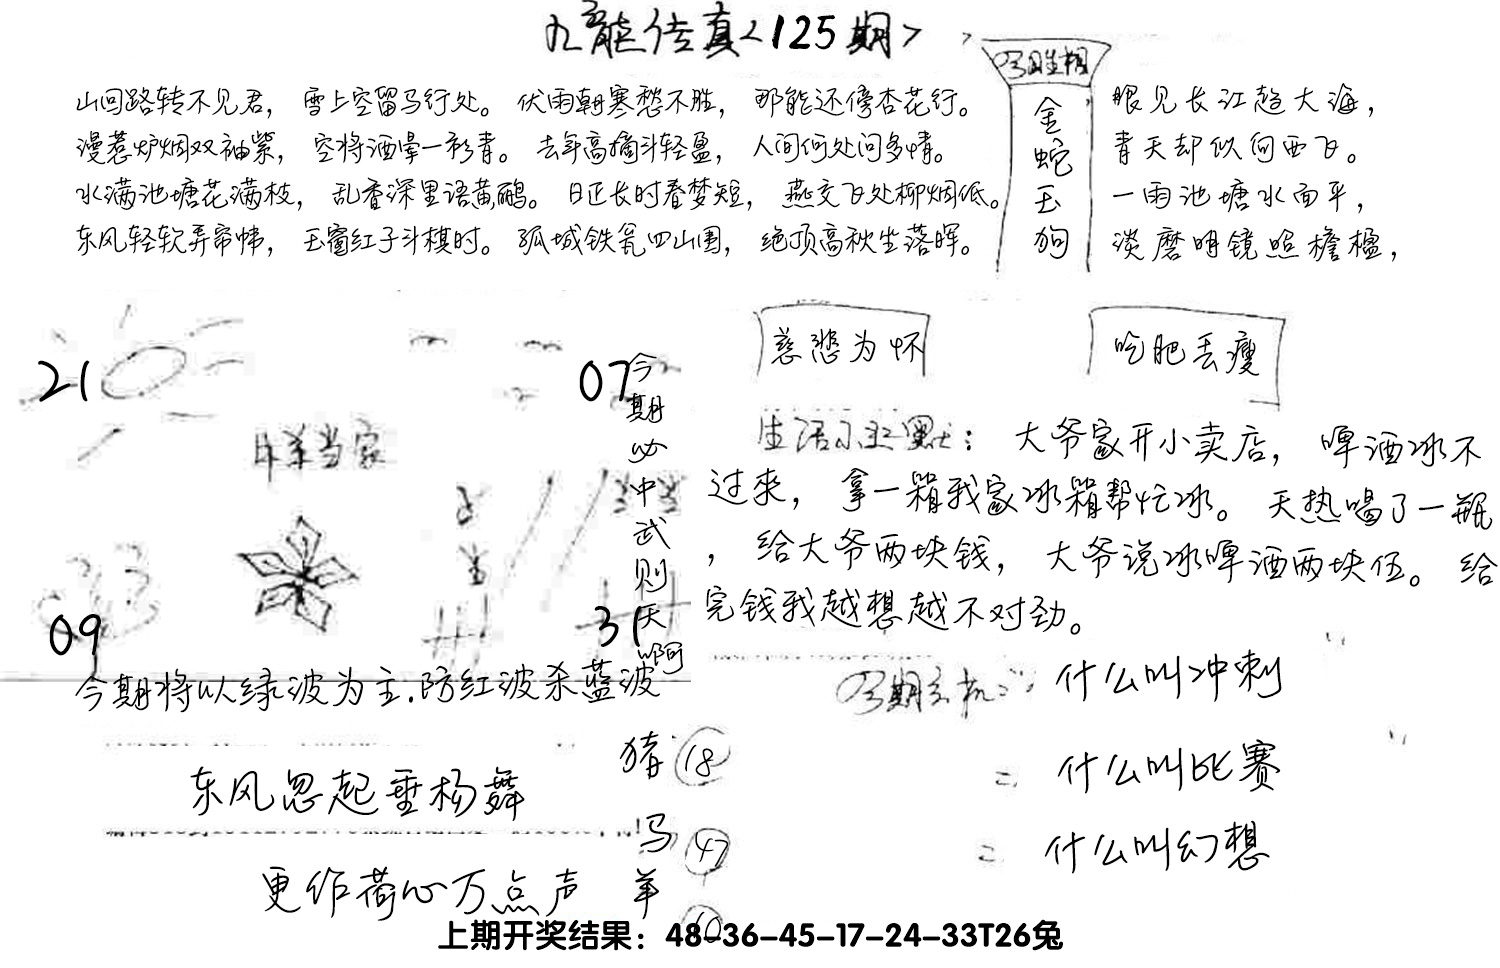 九龙传真<125期>
山回路转不见君，雪上空留马行处。伏雨朝寒愁不胜，那能还傍杏花行。
漫惹炉烟双袖紫，空将酒晕一衫青。去年高摘斗轻盈，人间何处问多情。
水满池塘花满枝，乱香深里语黄鹂。日正长时春梦短，燕交飞处柳烟低。
东风轻软弄帘帏，玉窗红子斗棋时。孤城铁瓮四山围，绝顶高秋坐落晖。
金蛇玉狗
眼见长江趋大海，
青天却似向西飞。
一雨池塘水面平，
淡磨明镜照檐楹，
慈悲为怀
吃肥丢瘦
21
07
羊当家
09
31
今期必中武则天啊
今期将以绿波为主.防红波杀蓝波
生活小幽默：大爷家开小卖店，啤酒冰不
过来，拿一箱我家冰箱帮忙冰。天热喝了一瓶
，给大爷两块钱，大爷说冰啤酒两块伍。给
完钱我越想越不对劲。
什么叫冲刺
什么叫比赛
什么叫幻想
东风忽起垂杨舞
更作荷心万点声
猪 18
马 47
羊 10
上期开奖结果：48-36-45-17-24-33T26兔